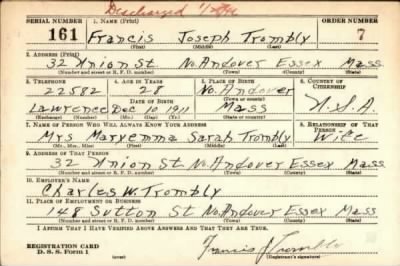 Discharged
SERIAL NUMBER 1. NAME (Print) ORDER NUMBER
161 Francis Joseph Trombly 7
(First) (Middle) (Last)
2. ADDRESS (Print)
32 Union St. No. Andover Essex Mass
(Number and street or R. F. D. number) (Town) (County) (State)
3. TELEPHONE 4. AGE IN YEARS 5. PLACE OF BIRTH 6. COUNTRY OF CITIZENSHIP
22582 28 No. Andover
DATE OF BIRTH (Town or county)
Lawrence Dec 10 1911 Mass U.S.A
(Exchange) (Number) (Mo.) (Day) (Yr.) (State or country)
7. NAME OF PERSON WHO WILL ALWAYS KNOW YOUR ADDRESS 8. RELATIONSHIP OF THAT PERSON
Mrs Maryemma Sarah Trombly Wife
(Mr., Mrs., Miss) (First) (Middle) (Last)
9. ADDRESS OF THAT PERSON
32 Union St No. Andover Essex Mass.
(Number and street or R. F. D. number) (Town) (County) (State)
10. EMPLOYER'S NAME
Charles W. Trombly
11. PLACE OF EMPLOYMENT OR BUSINESS
148 Sutton St No. Andover Essex Mass
(Number and street or R. F. D. number) (Town) (County) (State)
I AFFIRM THAT I HAVE VERIFIED ABOVE ANSWERS AND THAT THEY ARE TRUE.
REGISTRATION CARD
D. S. S. Form 1 Francis J Trombly
(over) (Registrant's signature)